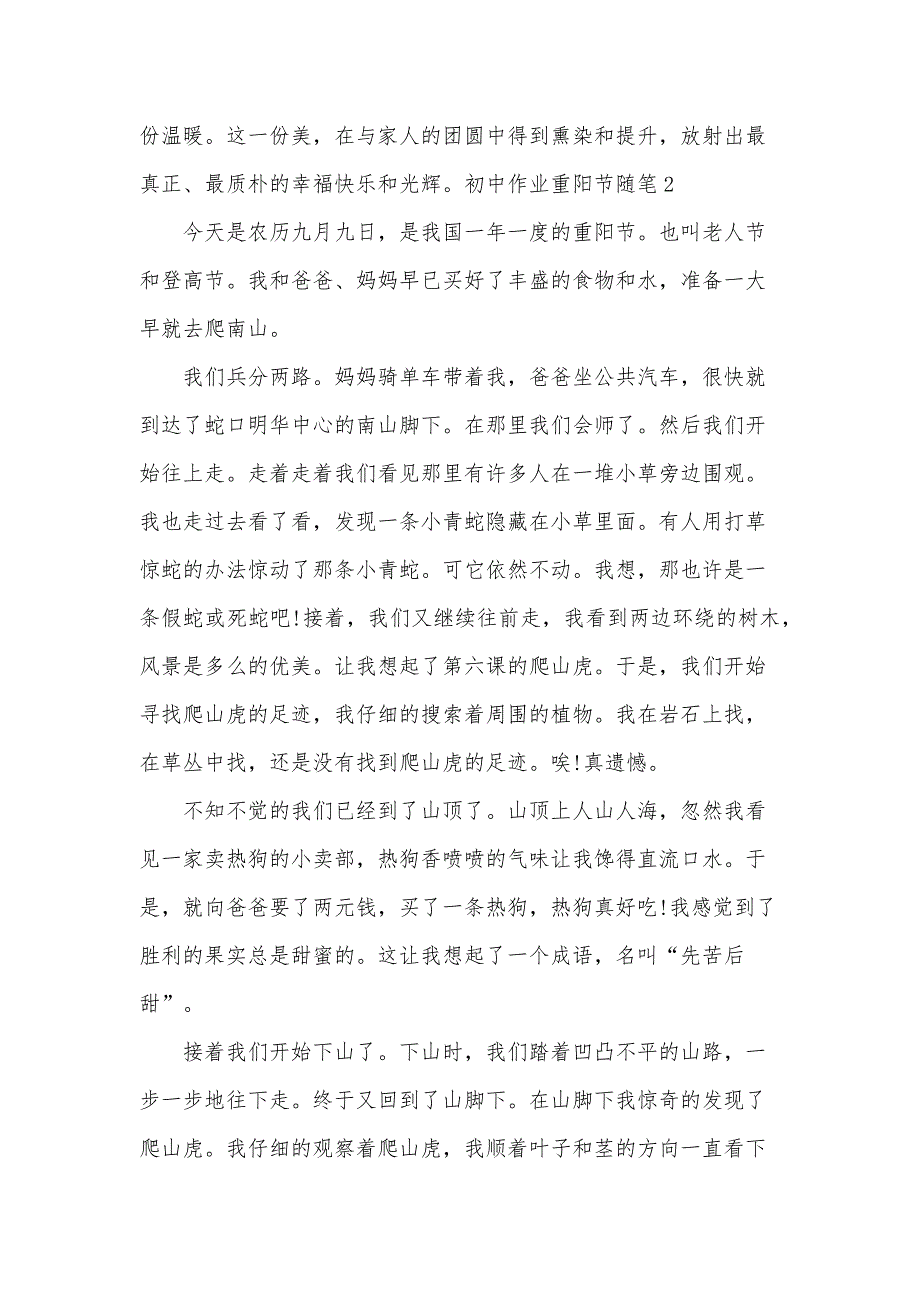 份温暖。这一份美，在与家人的团圆中得到熏染和提升，放射出最
真正、最质朴的幸福快乐和光辉。初中作业重阳节随笔2
今天是农历九月九日，是我国一年一度的重阳节。也叫老人节
和登高节。我和爸爸、妈妈早已买好了丰盛的食物和水，准备一大
早就去爬南山。
我们兵分两路。妈妈骑单车带着我，爸爸坐公共汽车，很快就
到达了蛇口明华中心的南山脚下。在那里我们会师了。然后我们开
始往上走。走着走着我们看见那里有许多人在一堆小草旁边围观。
我也走过去看了看，发现一条小青蛇隐藏在小草里面。有人用打草
惊蛇的办法惊动了那条小青蛇。可它依然不动。我想，那也许是一
条假蛇或死蛇吧!接着，我们又继续往前走，我看到两边环绕的树木，
风景是多么的优美。让我想起了第六课的爬山虎。于是，我们开始
寻找爬山虎的足迹，我仔细的搜索着周围的植物。我在岩石上找，
在草丛中找，还是没有找到爬山虎的足迹。唉!真遗憾。
不知不觉的我们已经到了山顶了。山顶上人山人海，忽然我看
见一家卖热狗的小卖部，热狗香喷喷的气味让我馋得直流口水。于
是，就向爸爸要了两元钱，买了一条热狗，热狗真好吃!我感觉到了
胜利的果实总是甜蜜的。这让我想起了一个成语，名叫“先苦后
甜”。
接着我们开始下山了。下山时，我们踏着凹凸不平的山路，一
步一步地往下走。终于又回到了山脚下。在山脚下我惊奇的发现了
爬山虎。我仔细的观察着爬山虎，我顺着叶子和茎的方向一直看下